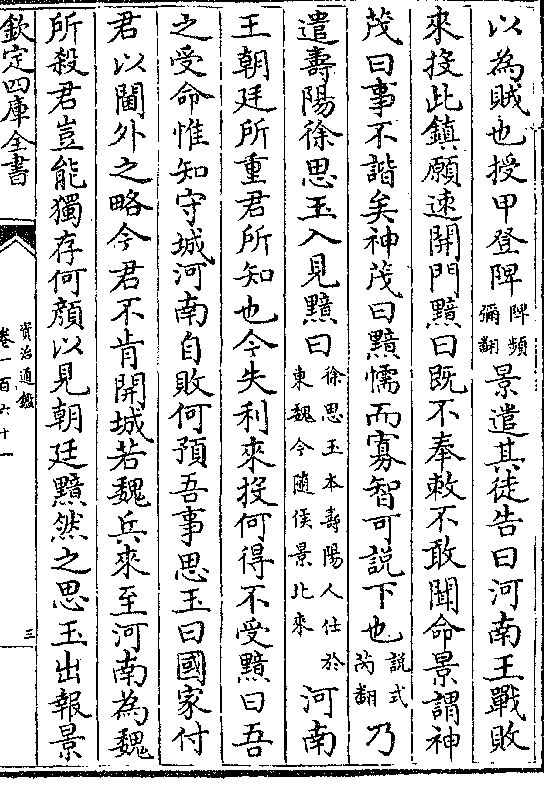 以為賊也授甲登陴陴頻彌翻景遣其徒告曰河南王戰敗
來投此鎮願速開門黯曰既不奉敕不敢聞命景謂神
茂曰事不諧矣神茂曰黯懦而寡智可說下也說式芮翻乃
遣壽陽徐思玉入見黯曰徐思玉本壽陽人仕於東魏今隨侯景北來河南
王朝廷所重君所知也今失利來投何得不受黯曰吾
之受命惟知守城河南自敗何預吾事思玉曰國家付
君以閫外之略今君不肯開城若魏兵來至河南為魏
所殺君豈能獨存何顏以見朝廷黯然之思玉出報景
欽定四庫全書
資治通鑑
卷一百六十一
三